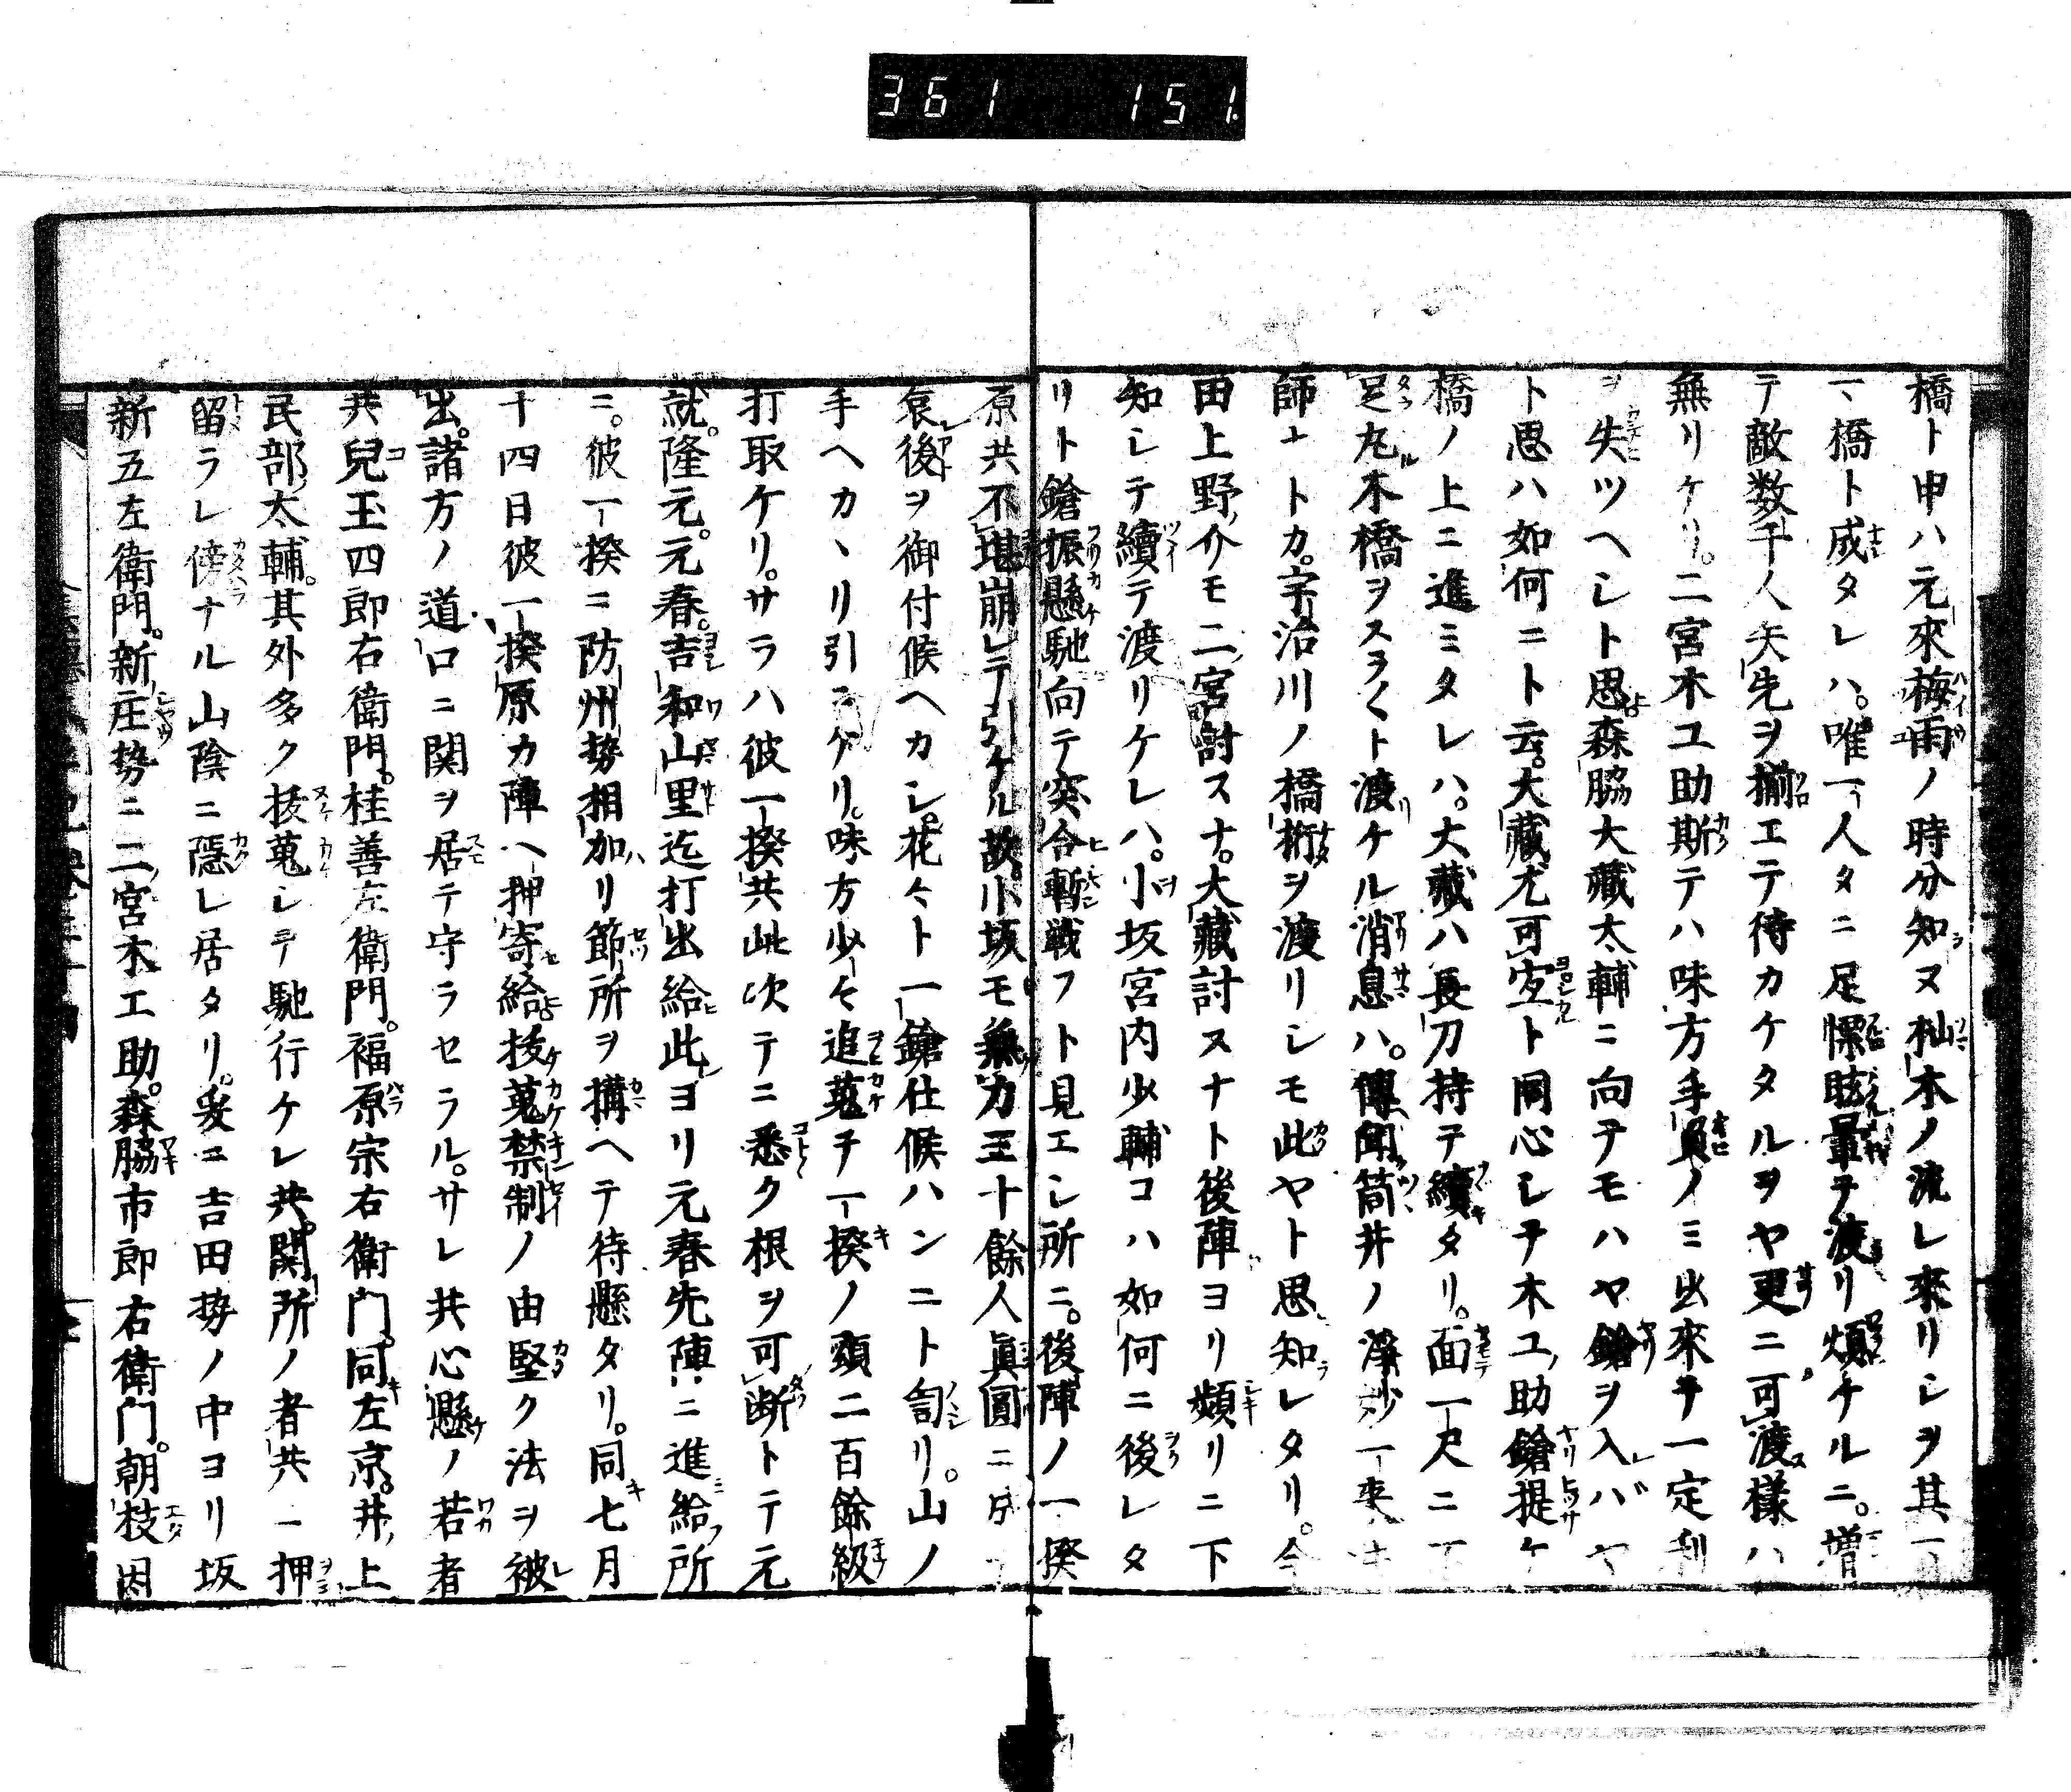 361 151.
橋ト申ハ元來梅雨ノ時分知ヌ杣木ノ流レ來リシヲ其
マヽ橋ト成タレハ。唯一人タニ足慄眩暈テ渡リ煩ケルニ。増
テ敵数千人矢先ヲ揃エテ待カケタルヲヤ更ニ可渡様ハ
無リケリ。二宮木工助斯テハ味方手負ノミ出來テ一定利
ヲ失ツヘシト思森脇大藏太輔ニ向テモハヤ鎗ヲ入バヤ
ト思ハ如何ニト云。大藏尤可宜ト同心シテ木工助鎗提ケ
橋ノ上ニ進ミタレハ。大藏ハ長刀持テ續タリ。面一尺ニ
足丸木橋ヲスラ〱ト渡ケル消息ハ。傳聞筒井ノ淨妙一來
師ナトカ。宇治川ノ橋桁ヲ渡リシモ此ヤト思知レタリ。今
田上野介モ二宮討スナ。大藏討スナト後陣ヨリ頻リニ下
知シテ續テ渡リケレハ。小坂宮内少輔コハ如何ニ後レタ
リト鎗振懸馳向テ突合暫戦フト見エシ所ニ。後陣ノ一揆
原共不堪崩レテ引ケル故小坂モ無力三十餘人眞圓ニ
哀後ヲ御付候ヘカシ。花々ト一鎗仕候ハンニト訇リ。山ノ
手ヘカヽリ引ニケリ。味方少々追蒐テ一揆ノ頸二百餘級
打取ケリ。サラハ彼一揆共此次テニ悉ク根ヲ可断トテ元
就。隆元。元春。吉和山里迄打出給此ヨリ元春先陣ニ進給所
ニ。彼一揆ニ防州勢相加リ節所ヲ構ヘテ待懸タリ。同七月
十四日彼一揆原カ陣ヘ押寄給抜蒐禁制ノ由堅ク法ヲ被
出。諸方ノ道口ニ関ヲ居テ守ラセラル。サレ共心懸ノ若者
共兒玉四郎右衛門。桂善左衛門。福原宗右衛門。同左京。井上
民部太輔。其外多ク抜蒐シテ馳行ケレ共。関所ノ者共ニ押
留ラレ傍ナル山陰ニ隠レ居タリ。爰ニ吉田勢ノ中ヨリ坂
新五左衛門。新庄勢ニ二宮木工助。森脇市郎右衛門。朝枝因